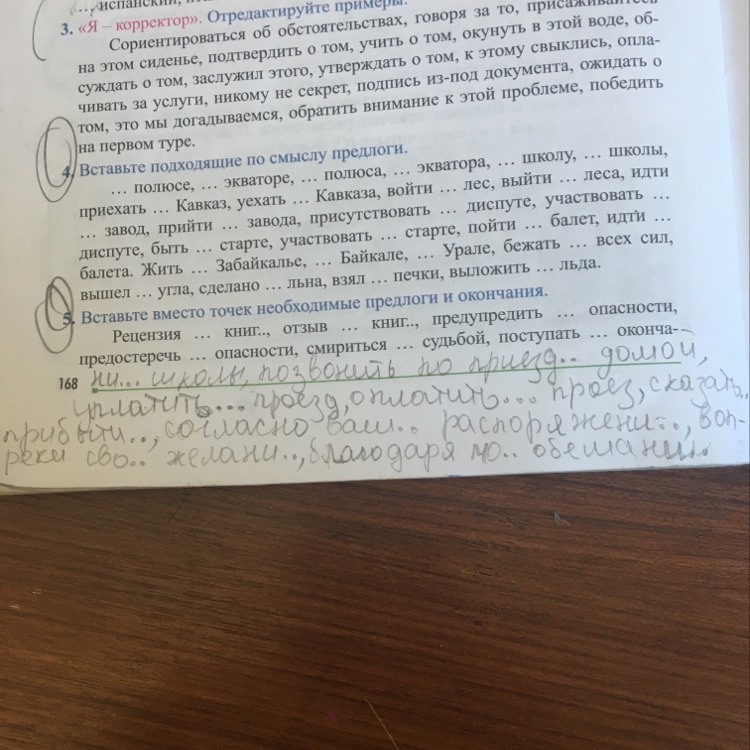 испанский,
3. «Я – корректор». Отредактируйте примеры.
Сориентироваться об обстоятельствах, говоря за то, присаживайтесь
на этом сиденье, подтвердить о том, учить о том, окунуть в этой воде, об-
суждать о том, заслужил этого, утверждать о том, к этому свыклись, опла-
чивать за услуги, никому не секрет, подпись из-под документа, ожидать о
том, это мы догадываемся, обратить внимание к этой проблеме, победить
на первом туре.
4. Вставьте подходящие по смыслу предлоги.
... полюсе, ... экваторе, ... полюса, ... экватора, ... школу, ... школы,
приехать ... Кавказ, уехать ... Кавказа, войти ... лес, выйти ... леса, идти
... завод, прийти ... завода, присутствовать ... диспуте, участвовать ...
диспуте, быть ... старте, участвовать ... старте, пойти ... балет, идти ...
балета. Жить ... Забайкалье, ... Байкале, ... Урале, бежать ... всех сил,
вышел ... угла, сделано ... льна, взял ... печки, выложить ... льда.
5. Вставьте вместо точек необходимые предлоги и окончания.
Рецензия ... книг.., отзыв ... книг.., предупредить ... опасности,
предостеречь ... опасности, смириться ... судьбой, поступать ... оконча-
168 ни... школы, позвонить по приезд.. домой,
уплатить... проезд, оплатить... проез, сказать..
прибыти.., согласно ваш.. распоряжени.., воп-
реки сво.. желани.., благодаря мо.. обещани..